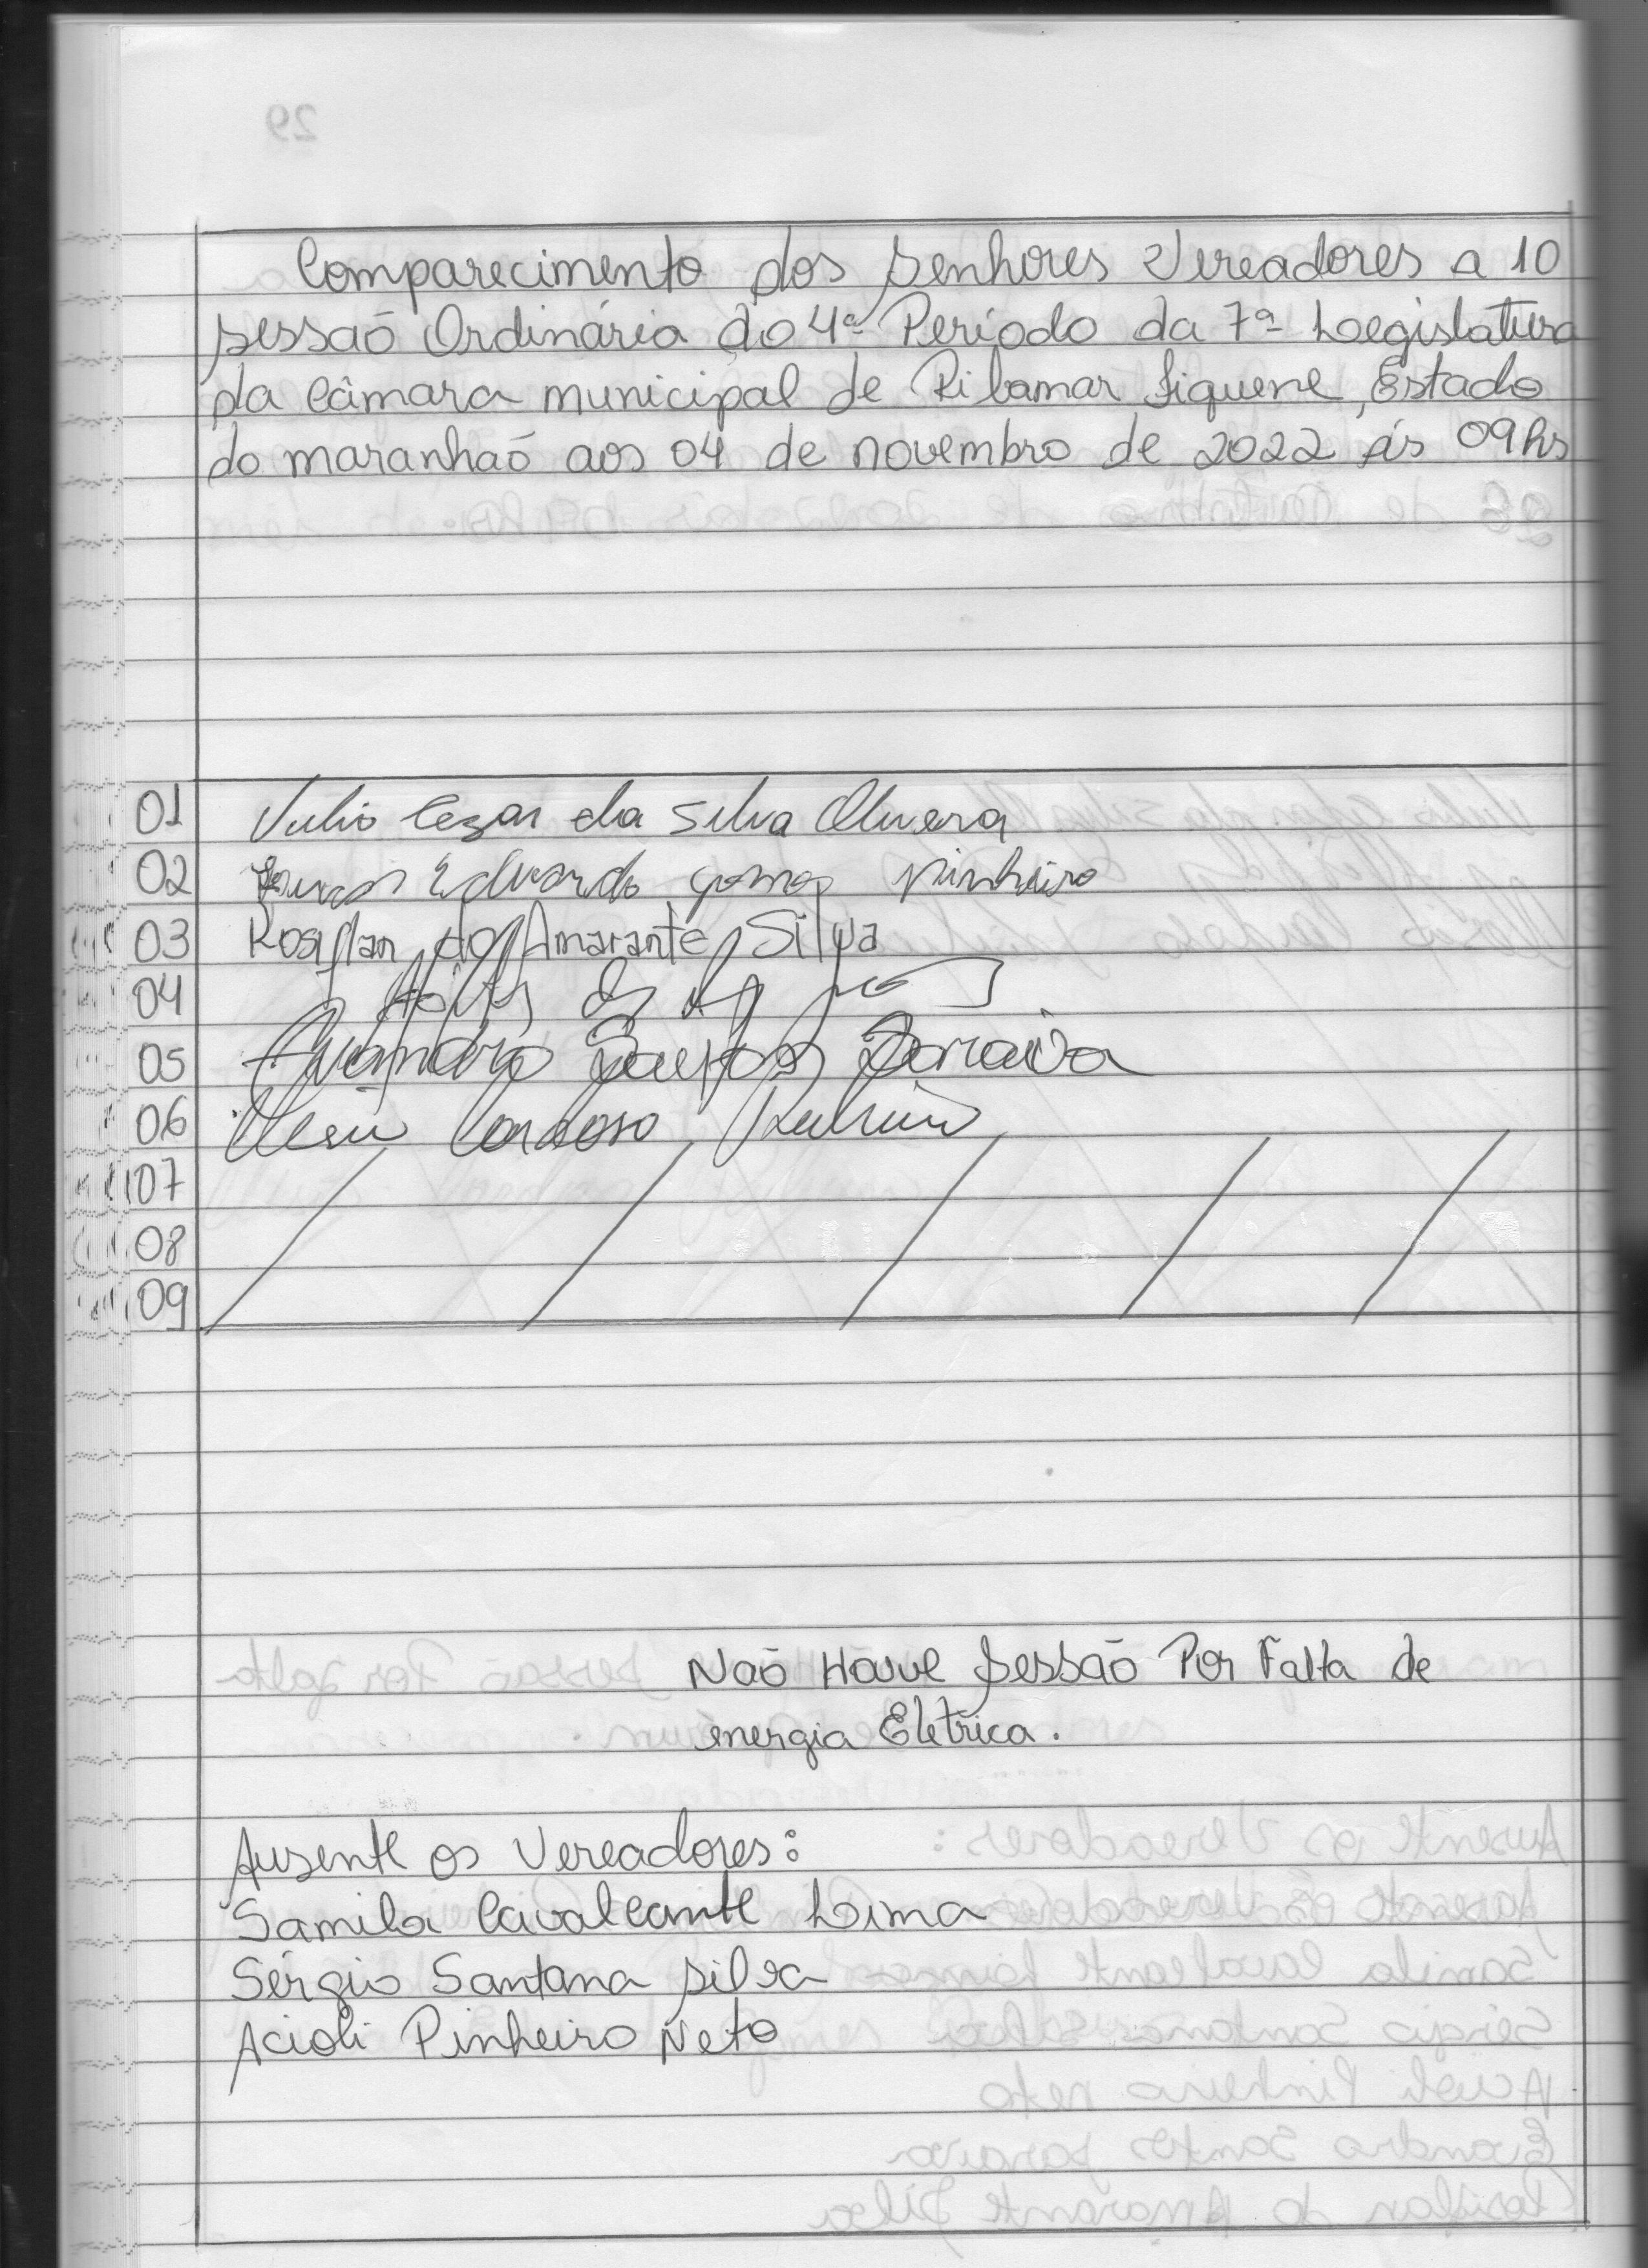 Comparecimento dos Senhores Vereadores a 10
sessaõ Ordinária do 4º Período da 7ª Legislatura
da Câmara municipal de Ribamar Fiquene, Estado
do maranhaõ aos 04 de novembro de 2022 ás 09hs
01 Julio Cezar da Silva Oliveira
02 Eduardo gomes Pinheiro
03 Rosiflan do Amarante Silva
04
05 Evandro Santos Saraiva
06 Cardoso
07
08
09
Naõ Houve Sessão Por Falta de
energia Eletrica.
Ausente os Vereadores:
Samila Cavalcante Lima
Sérgio Santana Silva
Acioli Pinheiro Neto